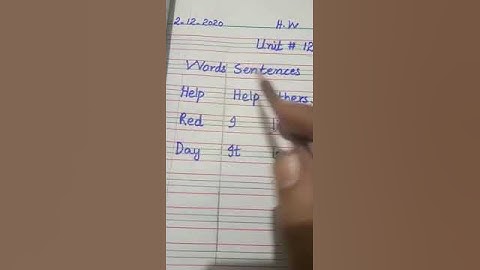 2.12.2020 H.W
Unit # 12
Words Sentences
Help Help
Red I
Day It